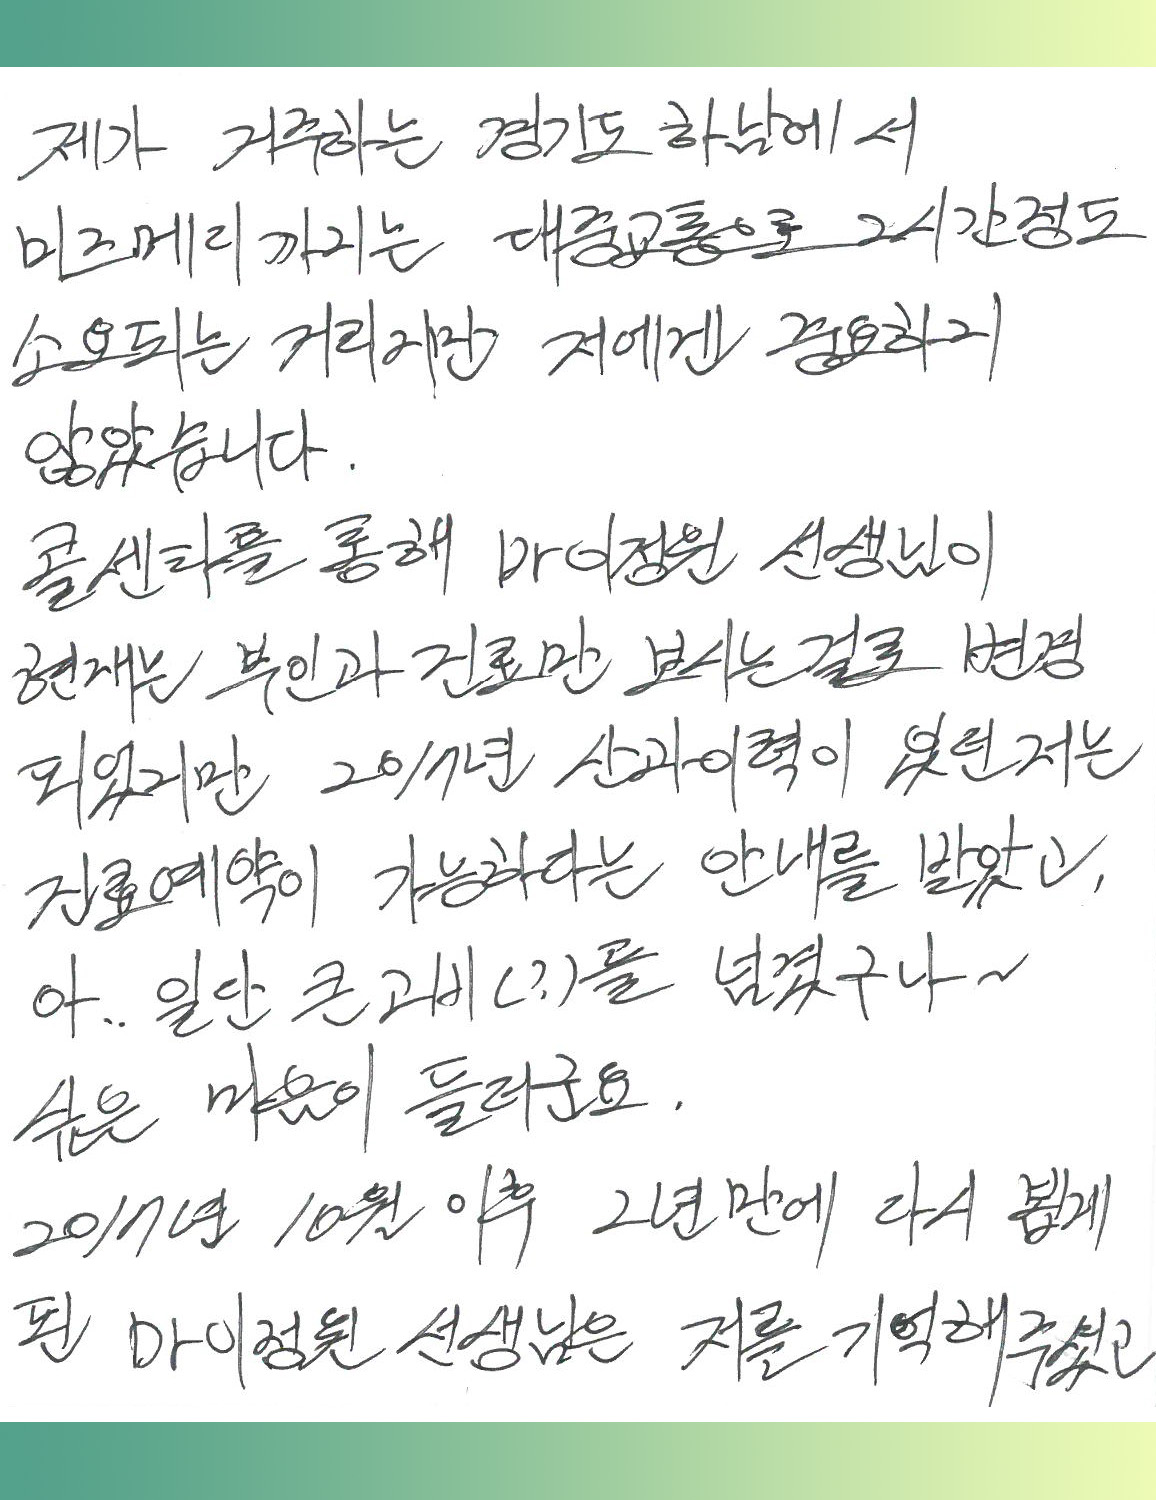 제가 거주하는 경기도 하남에서
미즈메디까지는 대중교통으로 2시간정도
소요되는 거리지만 저에겐 중요하지
않았습니다.
콜센터를 통해 마이정원 선생님이
현재는 부인과 진료만 보시는걸로 변경
되었지만 2017년 산과이력이 있던저는
진료예약이 가능하다는 안내를 받았고,
아.. 일단 큰고비(?)를 넘겼구나~
싶은 마음이 들더군요.
2017년 10월 이후 2년만에 다시 뵙게
된 마이정원 선생님은 저를 기억해주셨고